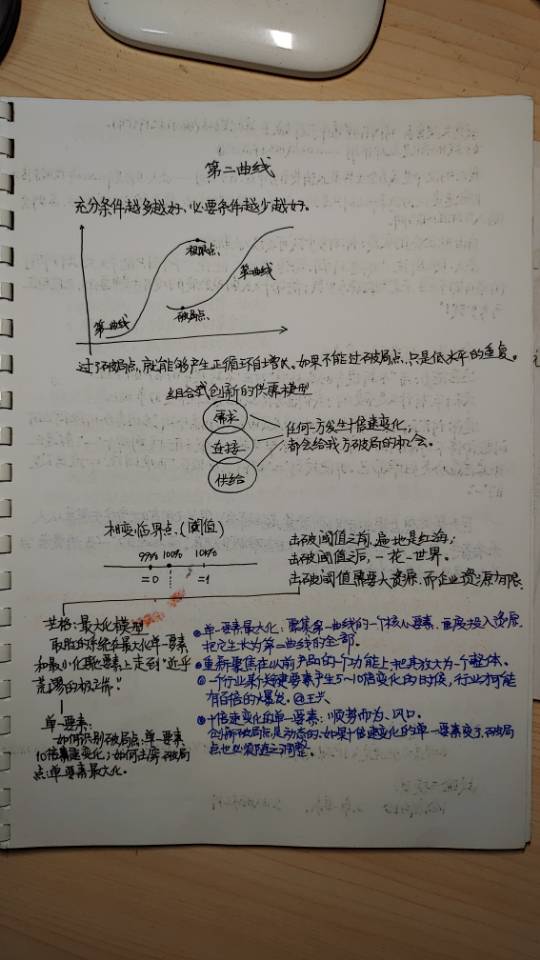 第二曲线
充分条件越多越好，必要条件越少越好。
极限点
第二曲线
第一曲线
破局点
过了破局点，就能够产生正循环自增长。如果不能过破局点，只是低水平的重复。
组合式创新的供需模型
需求
连接
供给
任何一方发生十倍速变化，
都会给我方破局的机会。
相变临界点（阈值）
99% 100% 101%
=0 =1
击破阈值之前，遍地是红海；
击破阈值之后，一花一世界。
击破阈值需要大资源，而企业资源有限。
芒格：最大化模型
取胜的系统在最大化单一要素
和最小化其他要素上走到“近乎
荒谬的极端”
单一要素：
一如何识别破局点：单一要素
10倍速变化；如何击穿破局
点：单一要素最大化。
单一要素最大化：聚集第一曲线的一个核心要素，重度投入资源，
把它生长为第二曲线的全部。
重新聚焦在以前产品的一个功能上，把其放大为一个整体。
一个行业某个关键要素产生5~10倍变化的时候，行业才可能
有百倍的爆发。@王兴
十倍速变化的单一要素：顺势而为、风口。
创新破局点是动态的，如果十倍速变化的单一要素变了，破局
点也必须随之调整。